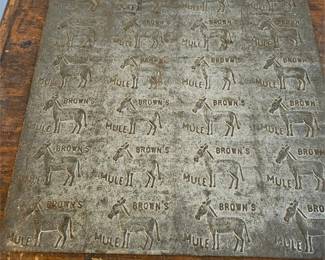 MULE MULE MULE MULE
BROWN'S BROWN'S BROWN'S BROWN
MULE MULE MULE MULE
BROWN'S BROWN'S BROWN'S BROWN
MULE MULE MULE MULE
BROWN'S BROWN'S BROWN'S
MULE MULE MULE MULE
BROWN'S BROWN'S BROWN'S
MULE MULE MULE MULE
BROWN'S BROWN'S BROWN'S
MULE MULE MULE